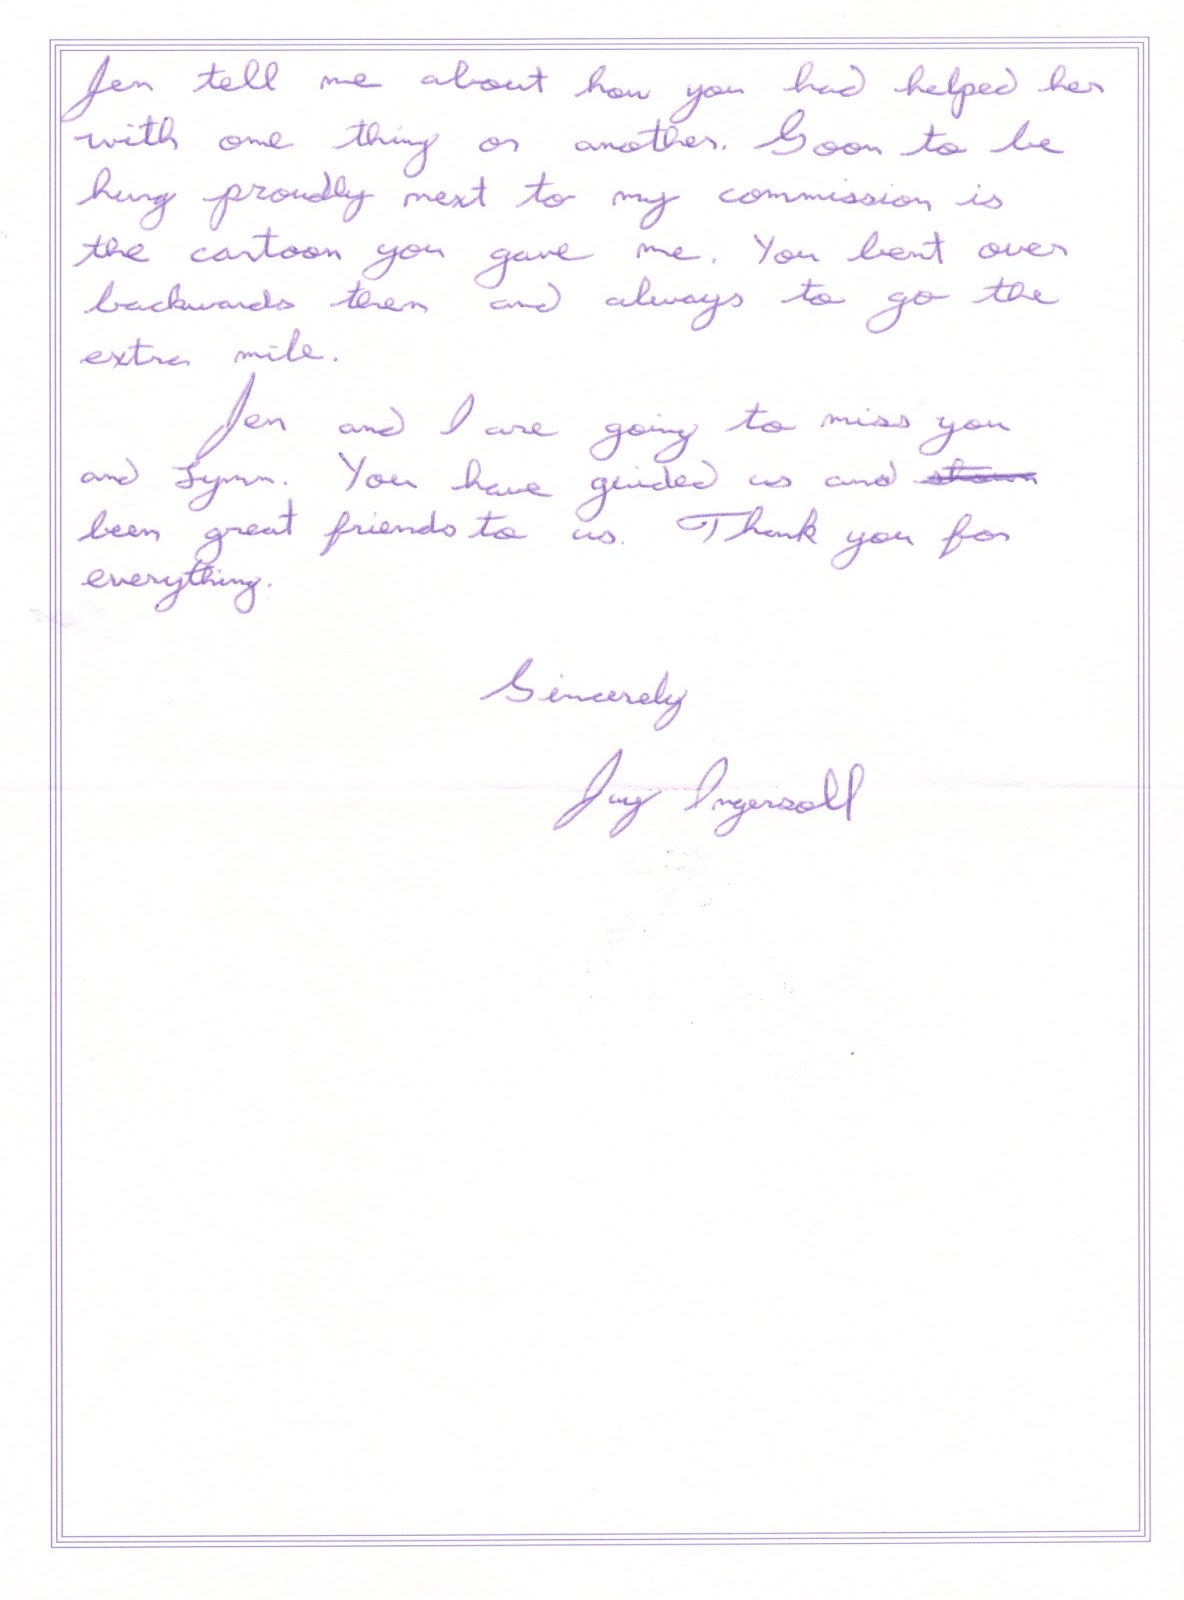 Jen tell me about how you had helped her
with one thing or another. Soon to be
hung proudly next to my commission is
the cartoon you gave me. You bent over
backwards then and always to go the
extra mile.
Jen and I are going to miss you
and Lynn. You have guided us and shown
been great friends to us. Thank you for
everything.
Sincerely
Jay Ingersoll